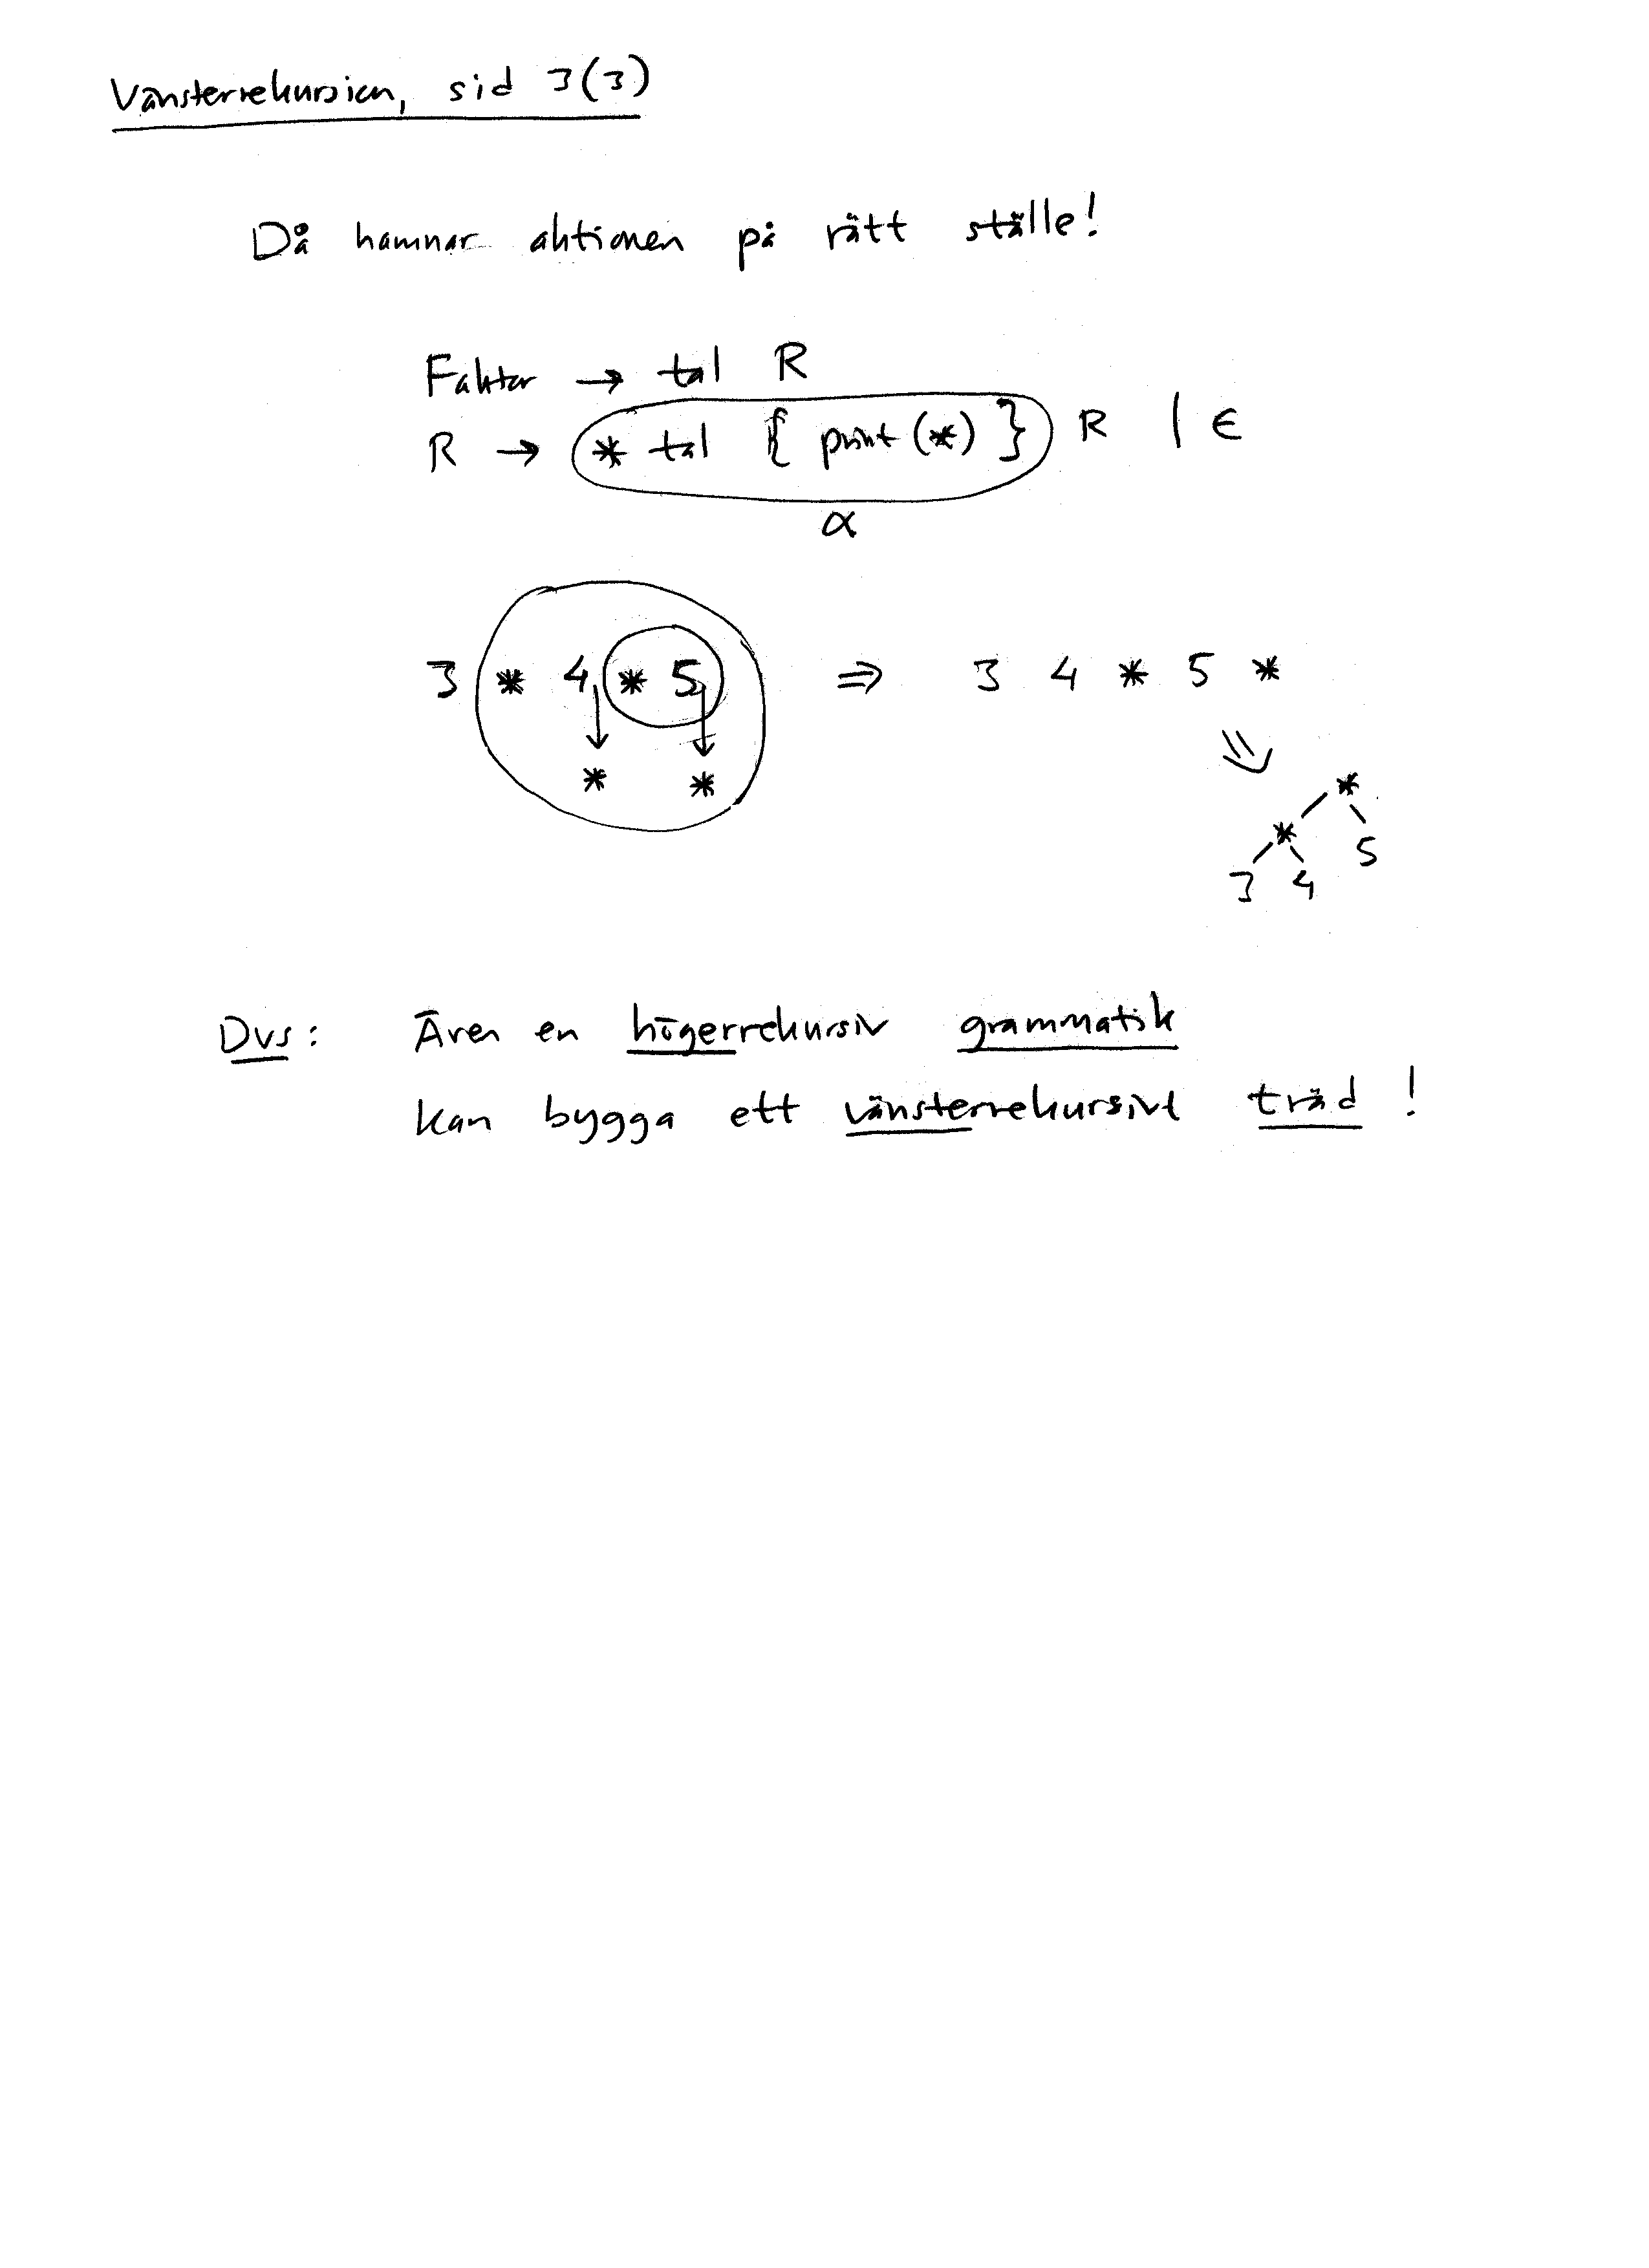 Vänsterrekursion, sid 3(3)
Då hamnar aktionen på rätt ställe!
Faktor → tal R
R → * tal { print(*) } R | ε
α
3 * 4 * 5 ⇒ 3 4 * 5 *
* *
⇓
*
* 5
3 4
Dvs: Även en högerrekursiv grammatik
kan bygga ett vänsterrekursivt träd!